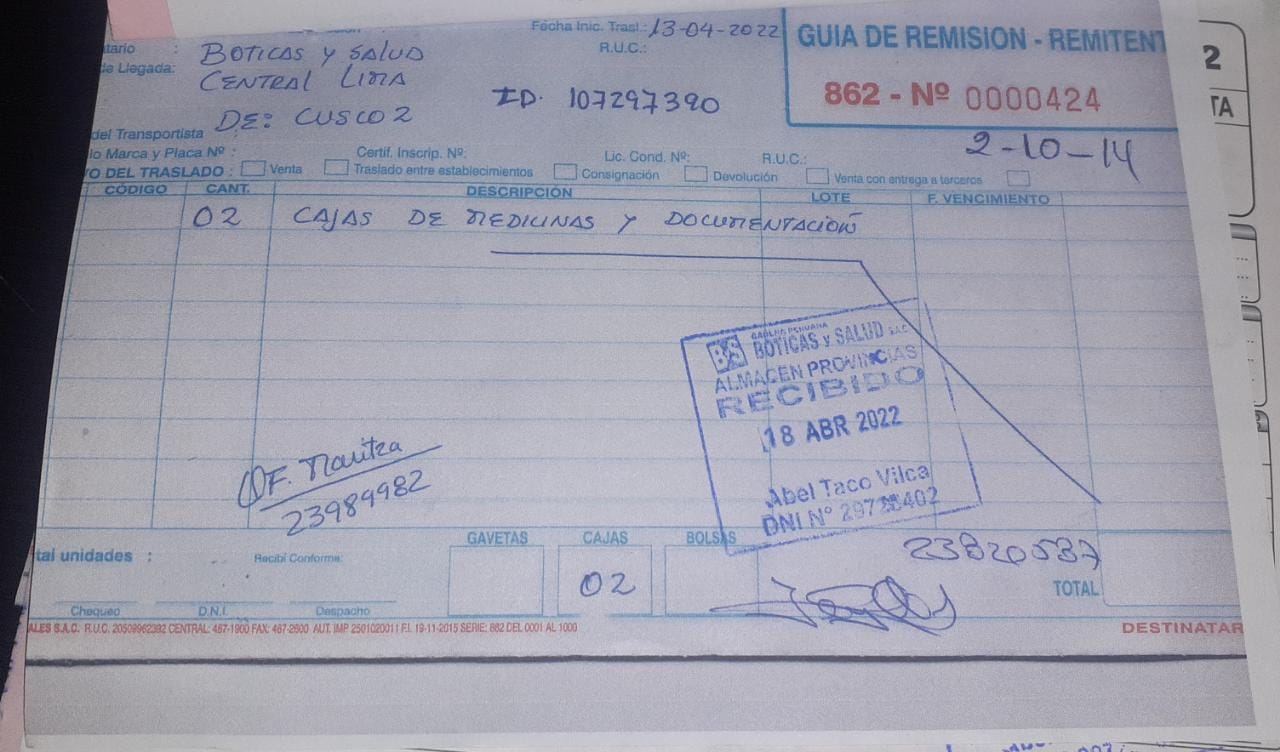 Fecha Inic. Trasl.: 13-04-2022
GUIA DE REMISION - REMITENT
tario : BOTICAS Y SALUD
R.U.C.:
de Llegada: CENTRAL LIMA
ID. 107297390
862 - Nº 0000424
DE: CUSCO 2
del Transportista
2-10-14
io Marca y Placa Nº :
Certif. Inscrip. Nº:
Lic. Cond. Nº:
R.U.C.:
O DEL TRASLADO : Venta Traslado entre establecimientos Consignación Devolución Venta con entrega a terceros
CÓDIGO CANT. DESCRIPCIÓN LOTE F. VENCIMIENTO
02 CAJAS DE MEDICINAS Y DOCUMENTACION
BS BOTICAS y SALUD S.A.C.
ALMACEN PROVINCIAS
RECIBIDO
18 ABR 2022
Abel Taco Vilca
DNI Nº
QF. Maritza
23989982
GAVETAS CAJAS BOLSAS
23820537
tal unidades :
Recibí Conforme:
02
TOTAL
Chequeo D.N.I. Despacho
ALES S.A.C. R.U.C. 20509962392 CENTRAL: 467-1900 FAX: 467-2600 AUT. IMP 2501020011 F.I. 19-11-2015 SERIE: 862 DEL 0001 AL 1000
DESTINATAR
2
TA